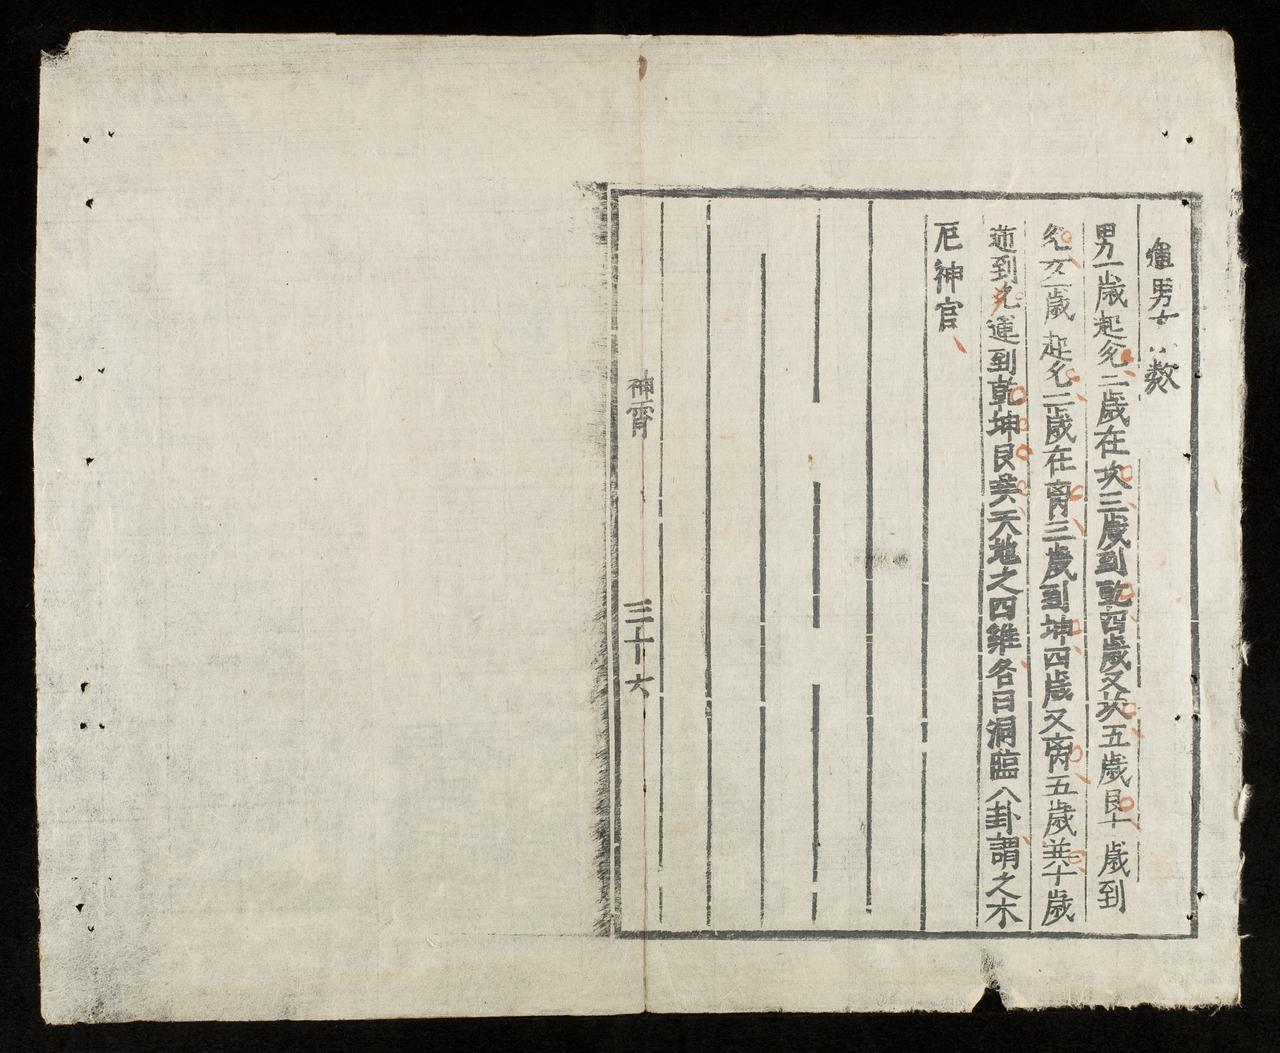 運男女小数
男一歲起兊二歲在坎三歲到乾四歲又坎五歲艮十歲到
兊女一歲起兊二歲在离三歲到坤四歲又离五歲巽十歲
逆到兊運到乾坤艮巽天地之四維各曰洞臨八卦謂之木
厄神官
神霄
三十六